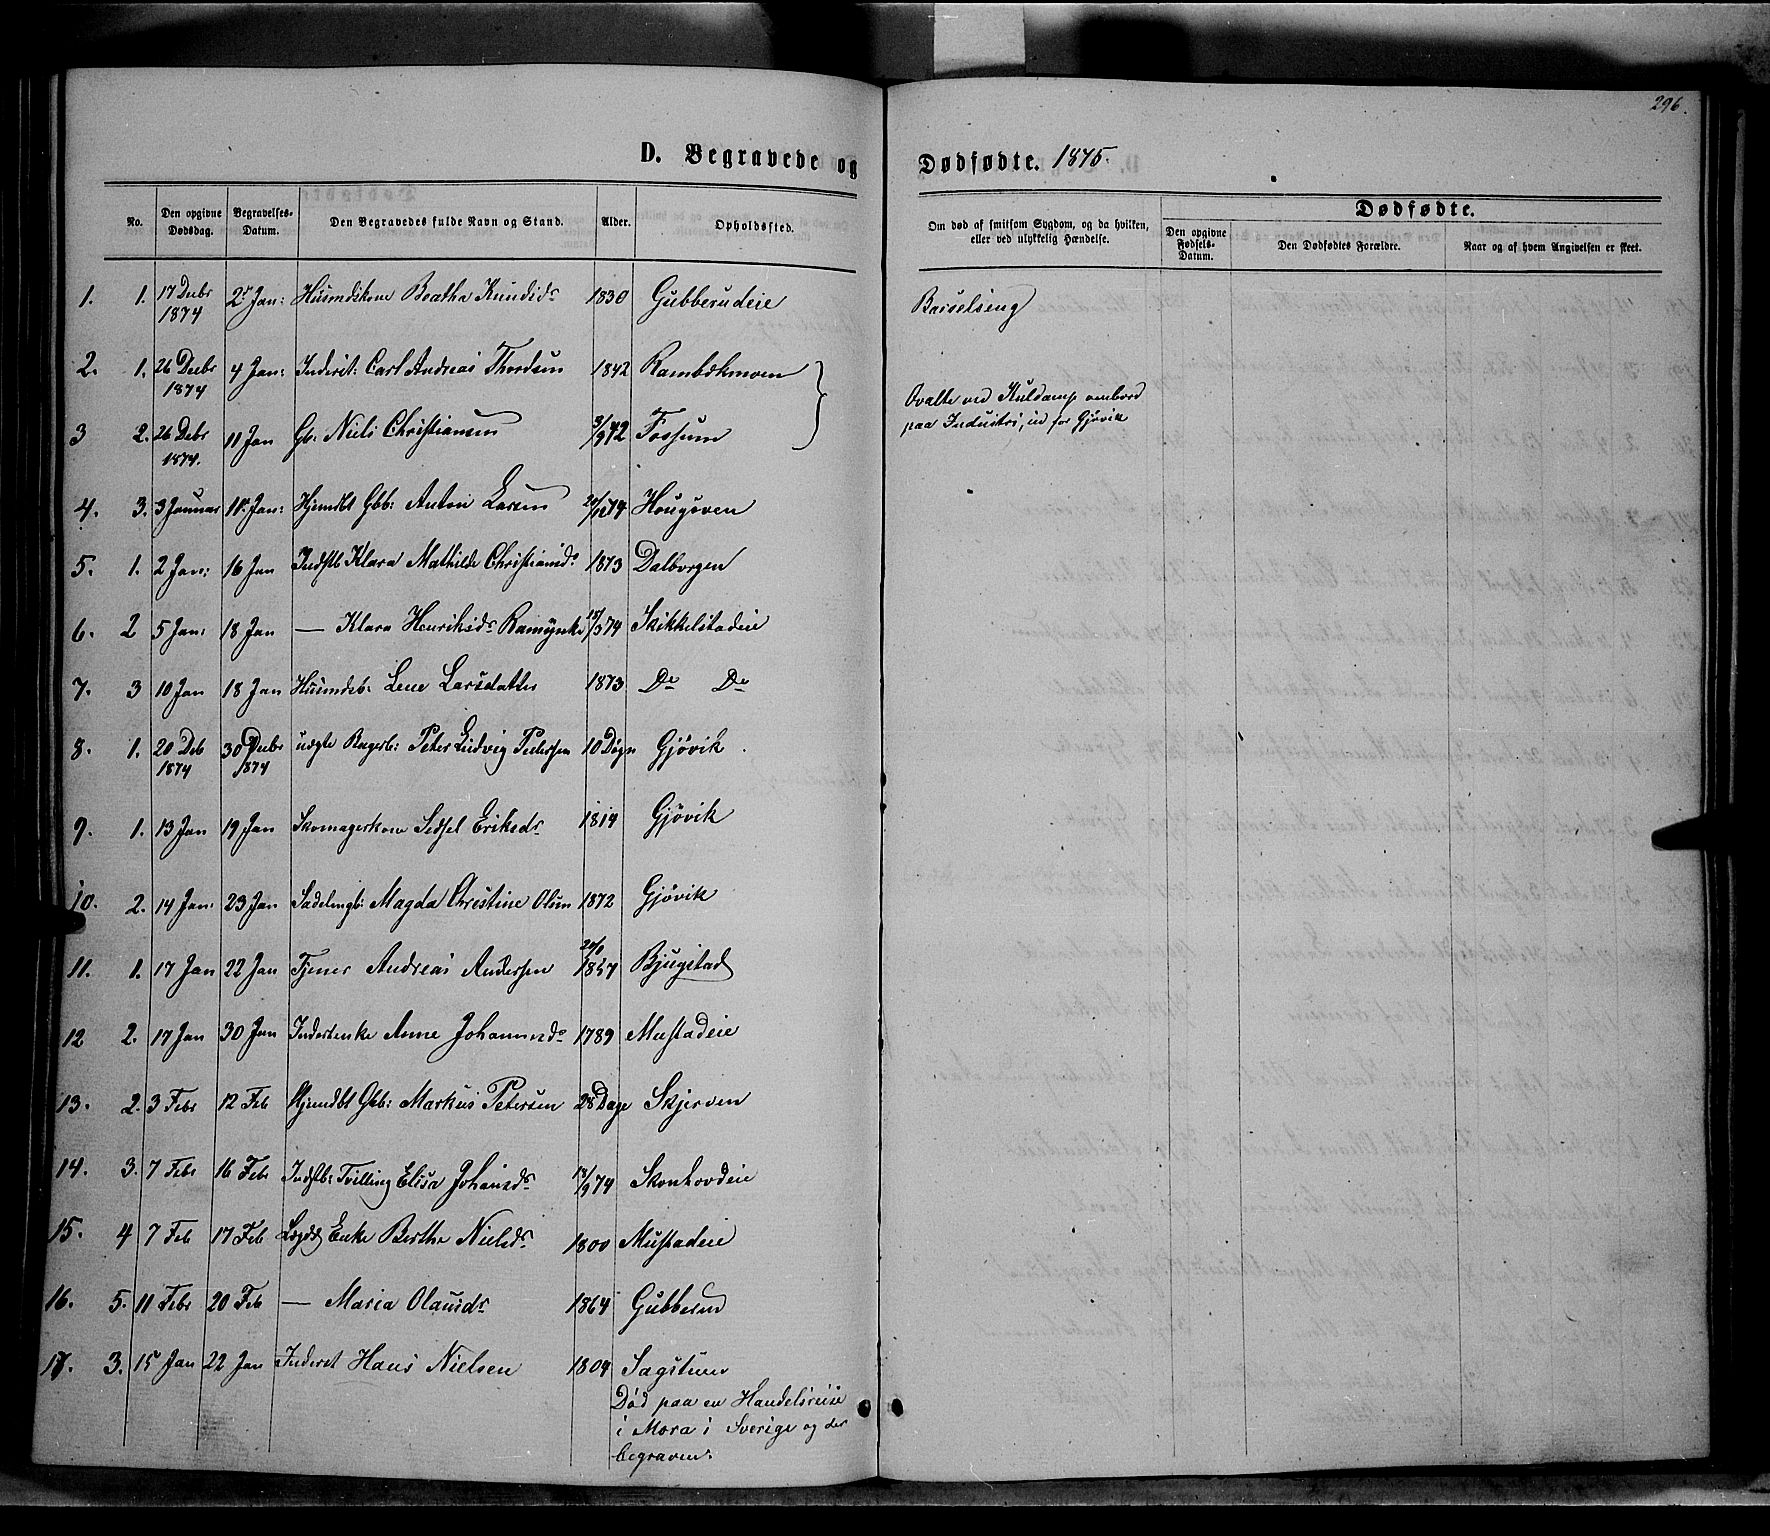 296.
D. Begravede og Dødfødte. 1875.
No. Den opgivne Dødsdag. Begravelses-Datum. Den Begravedes fulde Navn og Stand. Alder. Opholdssted. Om død af smitsom Sygdom, og da hvilken, eller ved ulykkelig Hændelse. Dødfødte. Den opgivne Fødsels-Datum. Den Dødfødtes Forældre. Naar og af hvem Angivelsen er skeet.
1. 1. 17 Decbr 1874 2 Jan: Husmdskone Beatha Knudsdr 1830 Gubberudeie Barselseng
2. 1. 26 Decbr 1874 4 Jan: Inderst: Carl Andreas Thordsen 1842 Rambekmoen
Qvalte ved Kuldamp ombord
paa Industri, ud for Gjøvik
3 2. 26 Debr 1874. 11 Jan Gb: Niels Christiansen 3/9 42 Fossum
4. 3. 3 Januar 11 Jan: Hjemdbt Gbb: Anton Larsen 74 Hougsven
5. 1. 2 Jan: 16 Jan Indstb Klara Mathilde Christiansdr 1873 Dalborgen
6. 2 5 Jan: 18 Jan — Klara Henriksdr 74 Skikkelstadeie
7. 3 10 Jan 18 Jan Husmdsb: Lene Larsdatter 1873 Do Do
8. 1. 20 Deb 1874 30 Decbr 1874 uægte Bagerb: Peter Ludvig Pedersen 10 Døgn Gjøvik
9. 1. 13 Jan 19 Jan Skomagerkone Sedsel Eriksdr 1814 Gjøvik
10. 2. 14 Jan: 23 Jan Sadelmgb: Magda Christine Olsen 1872 Gjøvik
11. 1. 17 Jan 22 Jan Tjener Andreas Andersen 1857 Bjugstad
12 2. 17 Jan 30 Jan Inderstenke Anne Johannesdr 1789 Mustadeie
13. 2. 3 Febr 12 Feb Hjemdbt Gbb: Markus Petersen 28 Dage Skjerven
14. 3. 7 Febr 16 Feb Indstb: Tvilling Elisa Johansdr 13/9 74 Skonhovdeie
15. 4 7 Feb 17 Feb Lægds Enke Berthe Nielsdr 1800 Mustadeie
16. 5. 11 Febr 20 Feb — Maria Olausdr 1864 Gubberud
17. 3. 15 Jan 22 Jan Inderst Hans Nielsen 1804 Sagstuen
Død paa en Handelsreise
i Mora i Sverige og der
begraven.